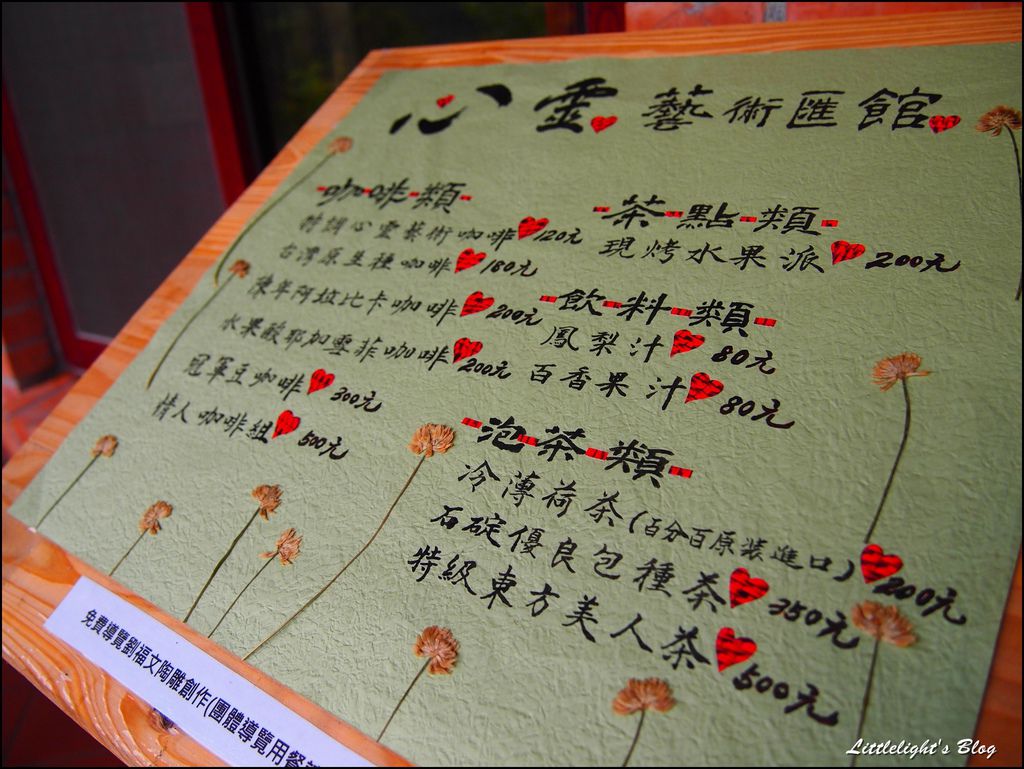 心靈藝術匯館
咖啡類
特調心靈藝術咖啡 120元
台灣原生種咖啡 180元
陳年阿拉比卡咖啡 200元
水果酸耶加雪菲咖啡 200元
冠軍豆咖啡 300元
情人咖啡組 500元
茶點類
現烤水果派 200元
飲料類
鳳梨汁 80元
百香果汁 80元
泡茶類
冷薄荷茶(百分百原裝進口) 200元
石碇優良包種茶 350元
特級東方美人茶 500元
免費導覽劉福文陶雕創作(團體導覽用餐
Littlelight's Blog